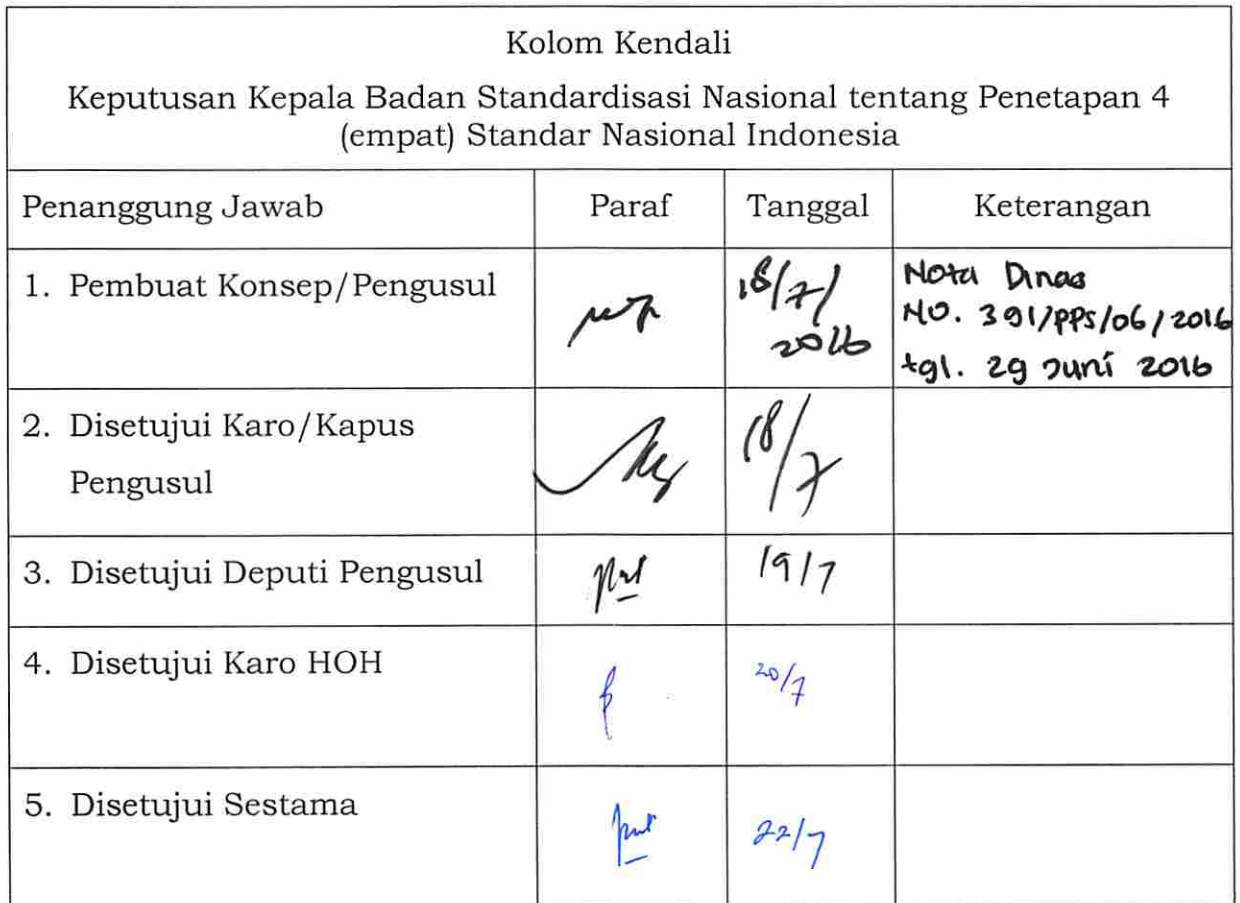 Kolom Kendali
Keputusan Kepala Badan Standardisasi Nasional tentang Penetapan 4
(empat) Standar Nasional Indonesia
Penanggung Jawab Paraf Tanggal Keterangan
1. Pembuat Konsep/Pengusul 18/7/ 2016
Nota Dinas
NO. 391/PPS/06/2016
tgl. 29 Juni 2016
2. Disetujui Karo/Kapus
Pengusul
18/7
3. Disetujui Deputi Pengusul 19/7
4. Disetujui Karo HOH 20/7
5. Disetujui Sestama 22/7